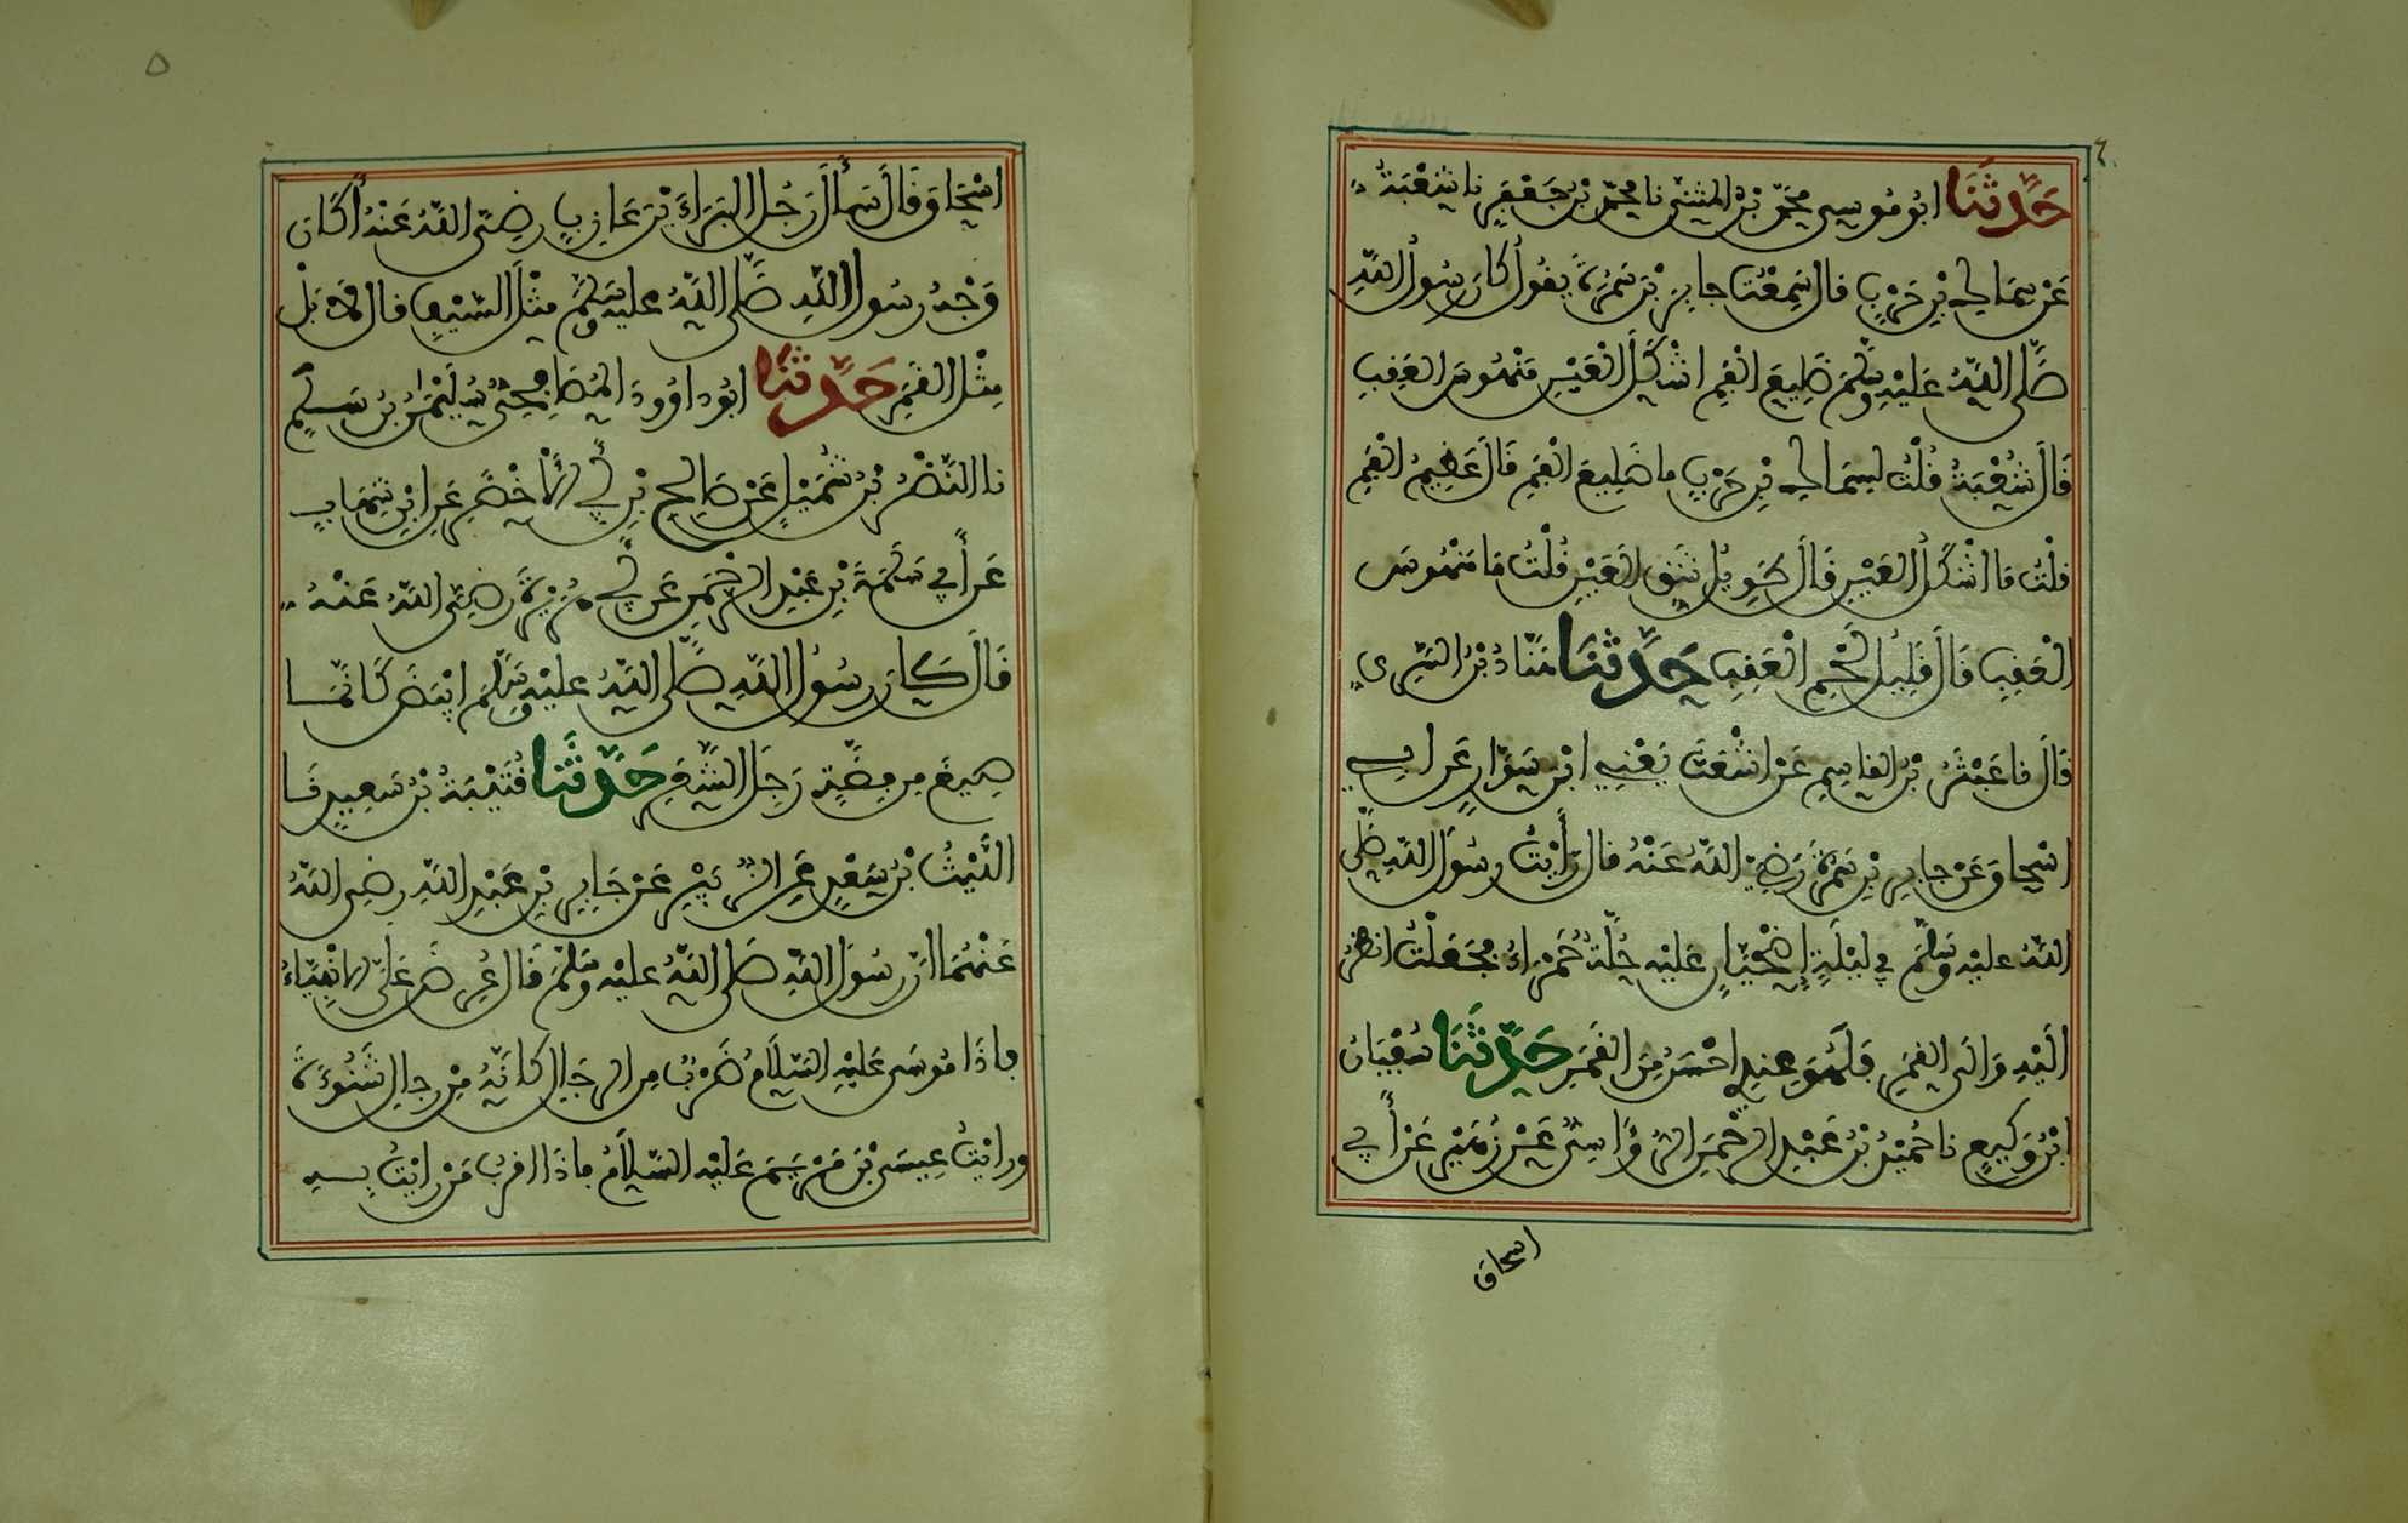 حَدَّثَنَا ابُو مُوسى محمّد بْن المثنى نا محمّد بْن جَعْفَرٍ نا شعْبَةُ
عَن سِمَاكِ بْنِ حَرْبٍ قال سَمِعْتُ جابِرَ بْنَ سَمُرَةَ يقُولُ كانَ رسُولُ اللّهِ
صَلّى اللّهُ عَلَيْهِ وسَلّمَ ضَلِيعَ الْفَمِ اشْكَلَ الْعَيْنِ مَنْهُوسَ العَقِبِ
قَالَ شُعْبَةُ قُلْتُ لِسِمَاكِ بْنِ حَرْبٍ ما ضَلِيعَ الْفَمِ قَالَ عَظِيمُ الْفَمِ
قلْتُ مَا اشْكَلُ العَيْنِ قَالَ طَوِيلُ شَقِّ الْعَيْنِ قُلْتُ مَا مَنْهُوسَ
الْعَقِبِ قَالَ قَلِيلُ لَحْمِ الْعَقِبِ حَدَّثَنَا هَنّادُ بْنُ السّرِي
قَالَ نا عَبْثَرُ بْنُ القاسِمِ عَنْ اشْعَثَ يَعْنِي ابْنَ سَوّارٍ عَن ابي
اسْحاقَ عَنْ جابِرِ بْنِ سَمُرَةَ رَضِيَ اللّهُ عَنْهُ قال رَأَيْتُ رسُولَ اللّهِ صَلّى
اللّهُ عليْهِ وسَلّمَ فِي لَيْلَةٍ إِضْحِيَانٍ عَلَيْهِ حُلّةٌ حَمْرَاءُ فَجَعَلْتُ انظُرُ
الَيْهِ وَالَى القَمَرِ فَلَهُوَ عِنْدِي احْسَنُ مِنَ الْقَمَرِ حَدَّثَنَا سُفْيَانُ
ابْنُ وَكِيعٍ نا حُمَيْدُ بْنُ عَبْدِ الرّحْمَنِ الرُّؤَاسِيُّ عَنْ زُهَيْرٍ عَنْ أَبِي
اسحاق
اسْحَاقَ قَالَ سَأَلَ رَجُلٌ البَرَاءَ بْنَ عَازِبٍ رضِيَ اللّهُ عَنْهُ أَكَانَ
وَجْهُ رسُولِ اللّهِ صَلّى اللّهُ عليْهِ وسَلّمَ مِثْلَ السّيْفِ قال لا بَلْ
مِثْلَ القَمَرِ حَدَّثَنَا ابُو دَاوُودَ المُصَاحِفِيُّ سُلَيْمَنُ بْنُ سَلْمٍ
نا النّضْرُ بْنُ شُمَيْلٍ عَنْ صَالِحِ بْنِ أَبِي الأَخْضَرِ عَنِ ابْنِ شِهَابٍ
عَن أَبِي سَلَمَةَ بْنِ عَبْدِ الرّحْمَنِ عَن أَبِي هُرَيْرَةَ رَضِيَ اللّهُ عَنْهُ
قَالَ كَانَ رسُولُ اللّهِ صَلّى اللّهُ عليْهِ وسَلّمَ ابْيَضَ كَانّمَا
صِيغَ مِن فِضّةٍ رَجِلَ الشّعَرِ حَدَّثَنَا قُتَيْبَةُ بْنُ سَعِيدٍ نَا
اللّيْثُ بْنُ سَعْدٍ عَن ابِي الزّبَيْرِ عَنْ جَابِرِ بْنِ عَبْدِ اللّهِ رضِيَ اللّهُ
عَنْهُمَا انّ رسُولَ اللّهِ صَلى اللّهُ عليْهِ وسَلّمَ قَالَ عُرِضَ عَلَيَّ الانْبِيَاءُ
فاذَا مُوسَى عَلَيْهِ السّلَامُ ضَرْبٌ مِن الرِّجَالِ كَانّهُ مِنْ رجالِ شَنُوءَةَ
ورايْتُ عِيسَى بْنَ مَرْيَمَ عَلَيْهِ السّلاَمُ فاذَا اقربُ مَنْ رايْتُ بِهِ